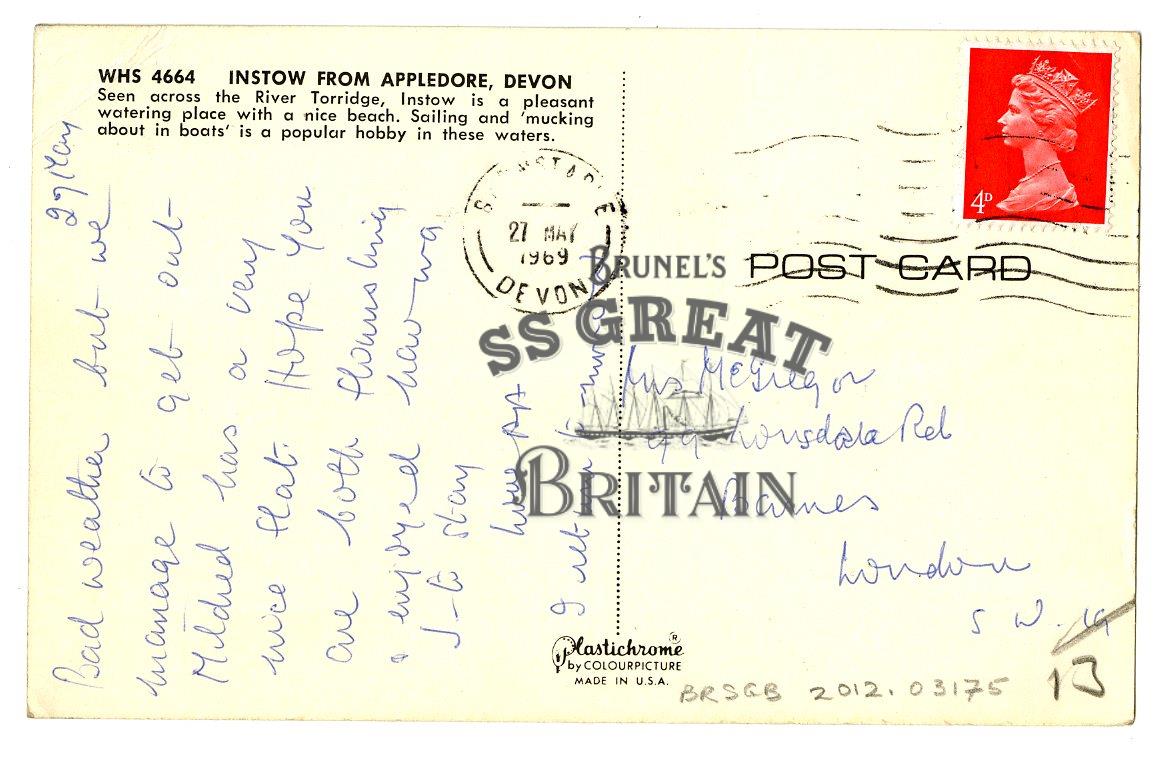 WHS 4664 INSTOW FROM APPLEDORE, DEVON
Seen across the River Torridge, Instow is a pleasant
watering place with a nice beach. Sailing and 'mucking
about in boats' is a popular hobby in these waters.
27 May
Bad weather but we
manage to get out
Mildred has a very
nice flat. Hope you
are both flourishing
& enjoyed having
J- to stay
love
I
4D
27 MAY
1969
DEVON
POST CARD
BRUNEL'S
SS GREAT
BRITAIN
McGregor
99 Lonsdale Rd
Barnes
London
S W. 19
13
Plastichrome ®
by COLOURPICTURE
MADE IN U.S.A.
BRSGB 2012.03175